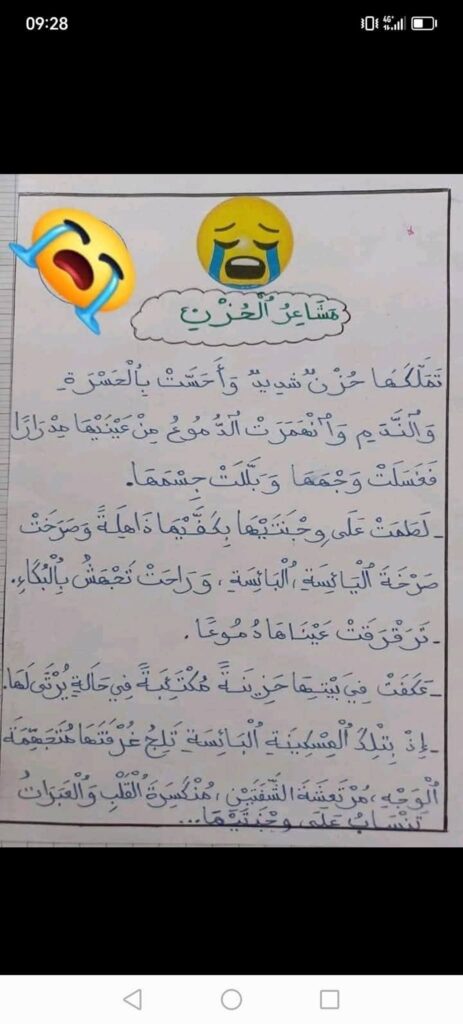 09:28
4G
مَشَاعِرُ ٱلْحُزْنِ
تَمَلَّكَهَا حُزْنٌ شَدِيدٌ وَأَحَسَّتْ بِٱلْحَسْرَةِ
وَٱلنَّدَمِ وَٱنْهَمَرَتْ ٱلدُّمُوعُ مِنْ عَيْنَيْهَا مِدْرَارًا
فَغَسَلَتْ وَجْهَهَا وَبَلَّلَتْ جِسْمَهَا.
- لَطَمَتْ عَلَى وِجْنَتَيْهَا بِكَفَّيْهَا ذَاهِلَةً وَصَرَخَتْ
صَرْخَةَ ٱلْيَائِسَةِ، ٱلْبَائِسَةِ، وَرَاحَتْ تَجْهَشُ بِٱلْبُكَاءِ.
- تَرَقْرَقَتْ عَيْنَاهَا دُمُوعًا.
- عَكَفَتْ فِي بَيْتِهَا حَزِينَةً مُكْتَئِبَةً فِي حَالَةٍ يُرْثَى لَهَا.
- إِذْ بِتِلْكَ ٱلْمِسْكِينَةِ ٱلْبَائِسَةِ تَلِجُ غُرْفَتَهَا مُتَجَهِّمَةَ
ٱلْوَجْهِ، مُرْتَعِشَةَ الشَّفَتَيْنِ، مُنْكَسِرَةَ ٱلْقَلْبِ وَٱلْعَبَرَاتُ
تَنْسَابُ عَلَى وِجْنَتَيْهَا...